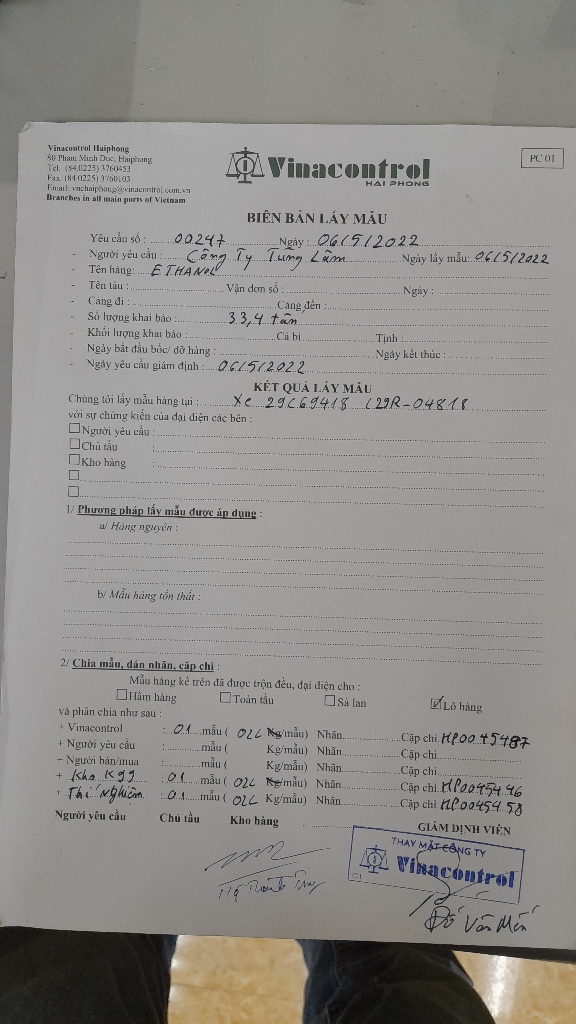 Vinacontrol Haiphong
80 Pham Minh Duc, Haiphong
Tel. (84.0225) 3760453
Fax. (84.0225) 3760103
Email: vnchaiphong@vinacontrol.com.vn
Branches in all main ports of Vietnam
Vinacontrol
HAI PHONG
PC 01
BIÊN BẢN LẤY MẪU
Yêu cầu số : 00247 Ngày : 06/5/2022
- Người yêu cầu : Công Ty Tùng Lâm Ngày lấy mẫu: 06/5/2022
- Tên hàng: ETHANOL
- Tên tàu : Vận đơn số : Ngày :
- Cảng đi : Cảng đến :
- Số lượng khai báo : 33,4 tấn
- Khối lượng khai báo : Cả bì Tịnh :
- Ngày bắt đầu bốc/ dỡ hàng : Ngày kết thúc :
- Ngày yêu cầu giám định : 06/5/2022
KẾT QUẢ LẤY MẪU
Chúng tôi lấy mẫu hàng tại : Xe 29C69418 /29R-04818
với sự chứng kiến của đại diện các bên :
Người yêu cầu :
Chủ tàu :
Kho hàng :
1/ Phương pháp lấy mẫu được áp dụng :
a/ Hàng nguyên :
b/ Mẫu hàng tổn thất :
2/ Chia mẫu, dán nhãn, cặp chì :
Mẫu hàng kể trên đã được trộn đều, đại diện cho :
Hầm hàng Toàn tàu Sà lan ☑ Lô hàng
và phân chia như sau :
+ Vinacontrol : 01 mẫu ( 02L Kg/mẫu) Nhãn Cặp chì HP0045487
+ Người yêu cầu : mẫu ( Kg/mẫu) Nhãn Cặp chì
+ Người bán/mua : mẫu ( Kg/mẫu) Nhãn Cặp chì
+ Kho K99 : 01 mẫu ( 02L Kg/mẫu) Nhãn Cặp chì HP0045446
+ Thí Nghiệm : 01 mẫu ( 02L Kg/mẫu) Nhãn Cặp chì HP0045458
Người yêu cầu Chủ tàu Kho hàng GIÁM ĐỊNH VIÊN
THAY MẶT CÔNG TY
Vinacontrol
Đỗ Văn Mến